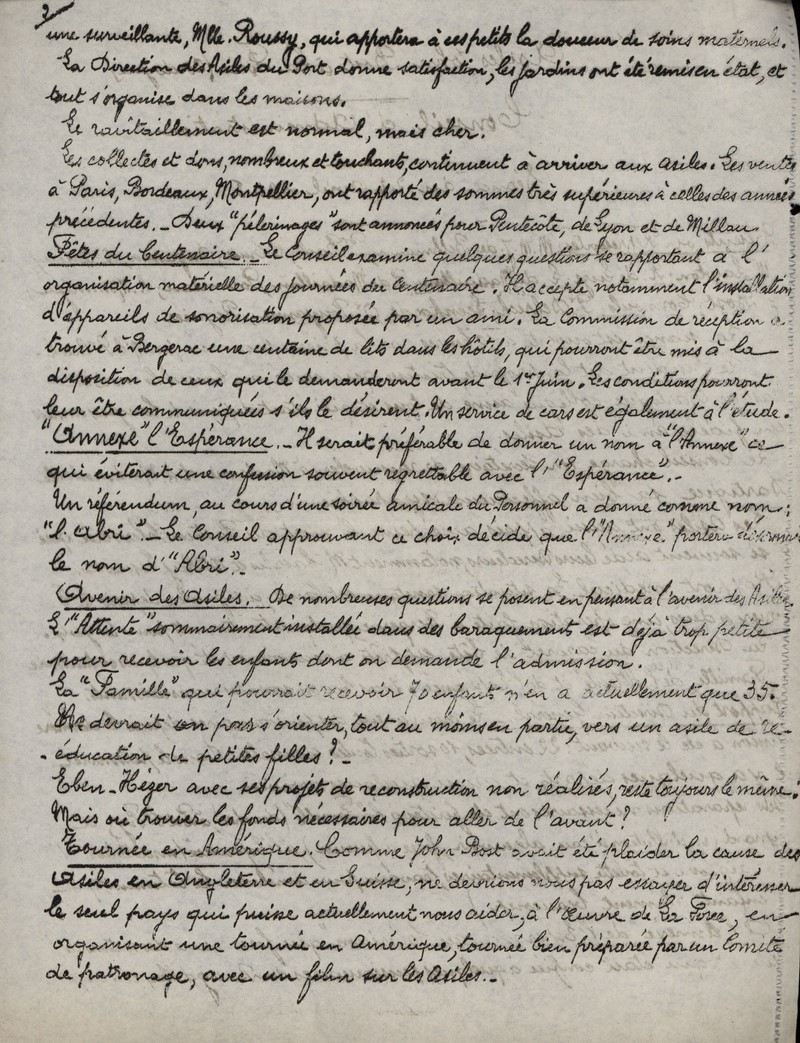 2
une surveillante, Mlle. Roussy, qui apportera à ces petits la douceur de soins maternels.
La Direction des Asiles du Port donne satisfaction, les jardins ont été remis en état, et
tout s'organise dans les maisons.
Le ravitaillement est normal, mais cher.
Les collectes et dons, nombreux et touchants, continuent à arriver aux asiles. Les ventes
à Paris, Bordeaux, Montpellier, ont rapporté des sommes très supérieures à celles des années
précédentes._ Deux "pélerinages" sont annoncés pour Pentecôte, de Lyon et de Millau.
Fêtes du Centenaire._ Le Conseil examine quelques questions se rapportant à l'
organisation matérielle des journées du Centenaire. Il accepte notamment l'installation
d'appareils de sonorisation proposée par un ami. La Commission de réception a
trouvé à Bergerac une centaine de lits dans les hôtels, qui pourront être mis à la
disposition de ceux qui le demanderont avant le 1er Juin. Les conditions pourront
leur être communiquées s'ils le désirent. Un service de cars est également à l'étude.
"Annexe" l'Espérance._ Il serait préférable de donner un nom à "l'Annexe" ce
qui éviterait une confusion souvent regrettable avec l'"Espérance"._
Un référendum, au cours d'une soirée amicale du Personnel a donné comme nom:
"l'Abri"._ Le Conseil approuvant ce choix décide que l'"Annexe" portera désormais
le nom d'"Abri"._
Avenir des Asiles. De nombreuses questions se posent en pensant à l'avenir des Asiles.
L'"Attente" sommairement installée dans des baraquements est déjà trop petite
pour recevoir les enfants dont on demande l'admission.
La "Famille" qui pourrait recevoir 70 enfants n'en a actuellement que 35.
Ne devrait on pas s'orienter, tout au moins en partie, vers un asile de ré-
éducation de petites filles?_
Eben-Hézer avec ses projets de reconstruction non réalisés, reste toujours le même:
Mais où trouver les fonds nécessaires pour aller de l'avant?
Tournée en Amérique. Comme John Bost avait été plaider la cause des
Asiles en Angleterre et en Suisse, ne devrions nous pas essayer d'intéresser
le seul pays qui puisse actuellement nous aider, à l'œuvre de La Force, en
organisant une tournée en Amérique, tournée bien préparée par un Comité
de patronage, avec un film sur les Asiles._